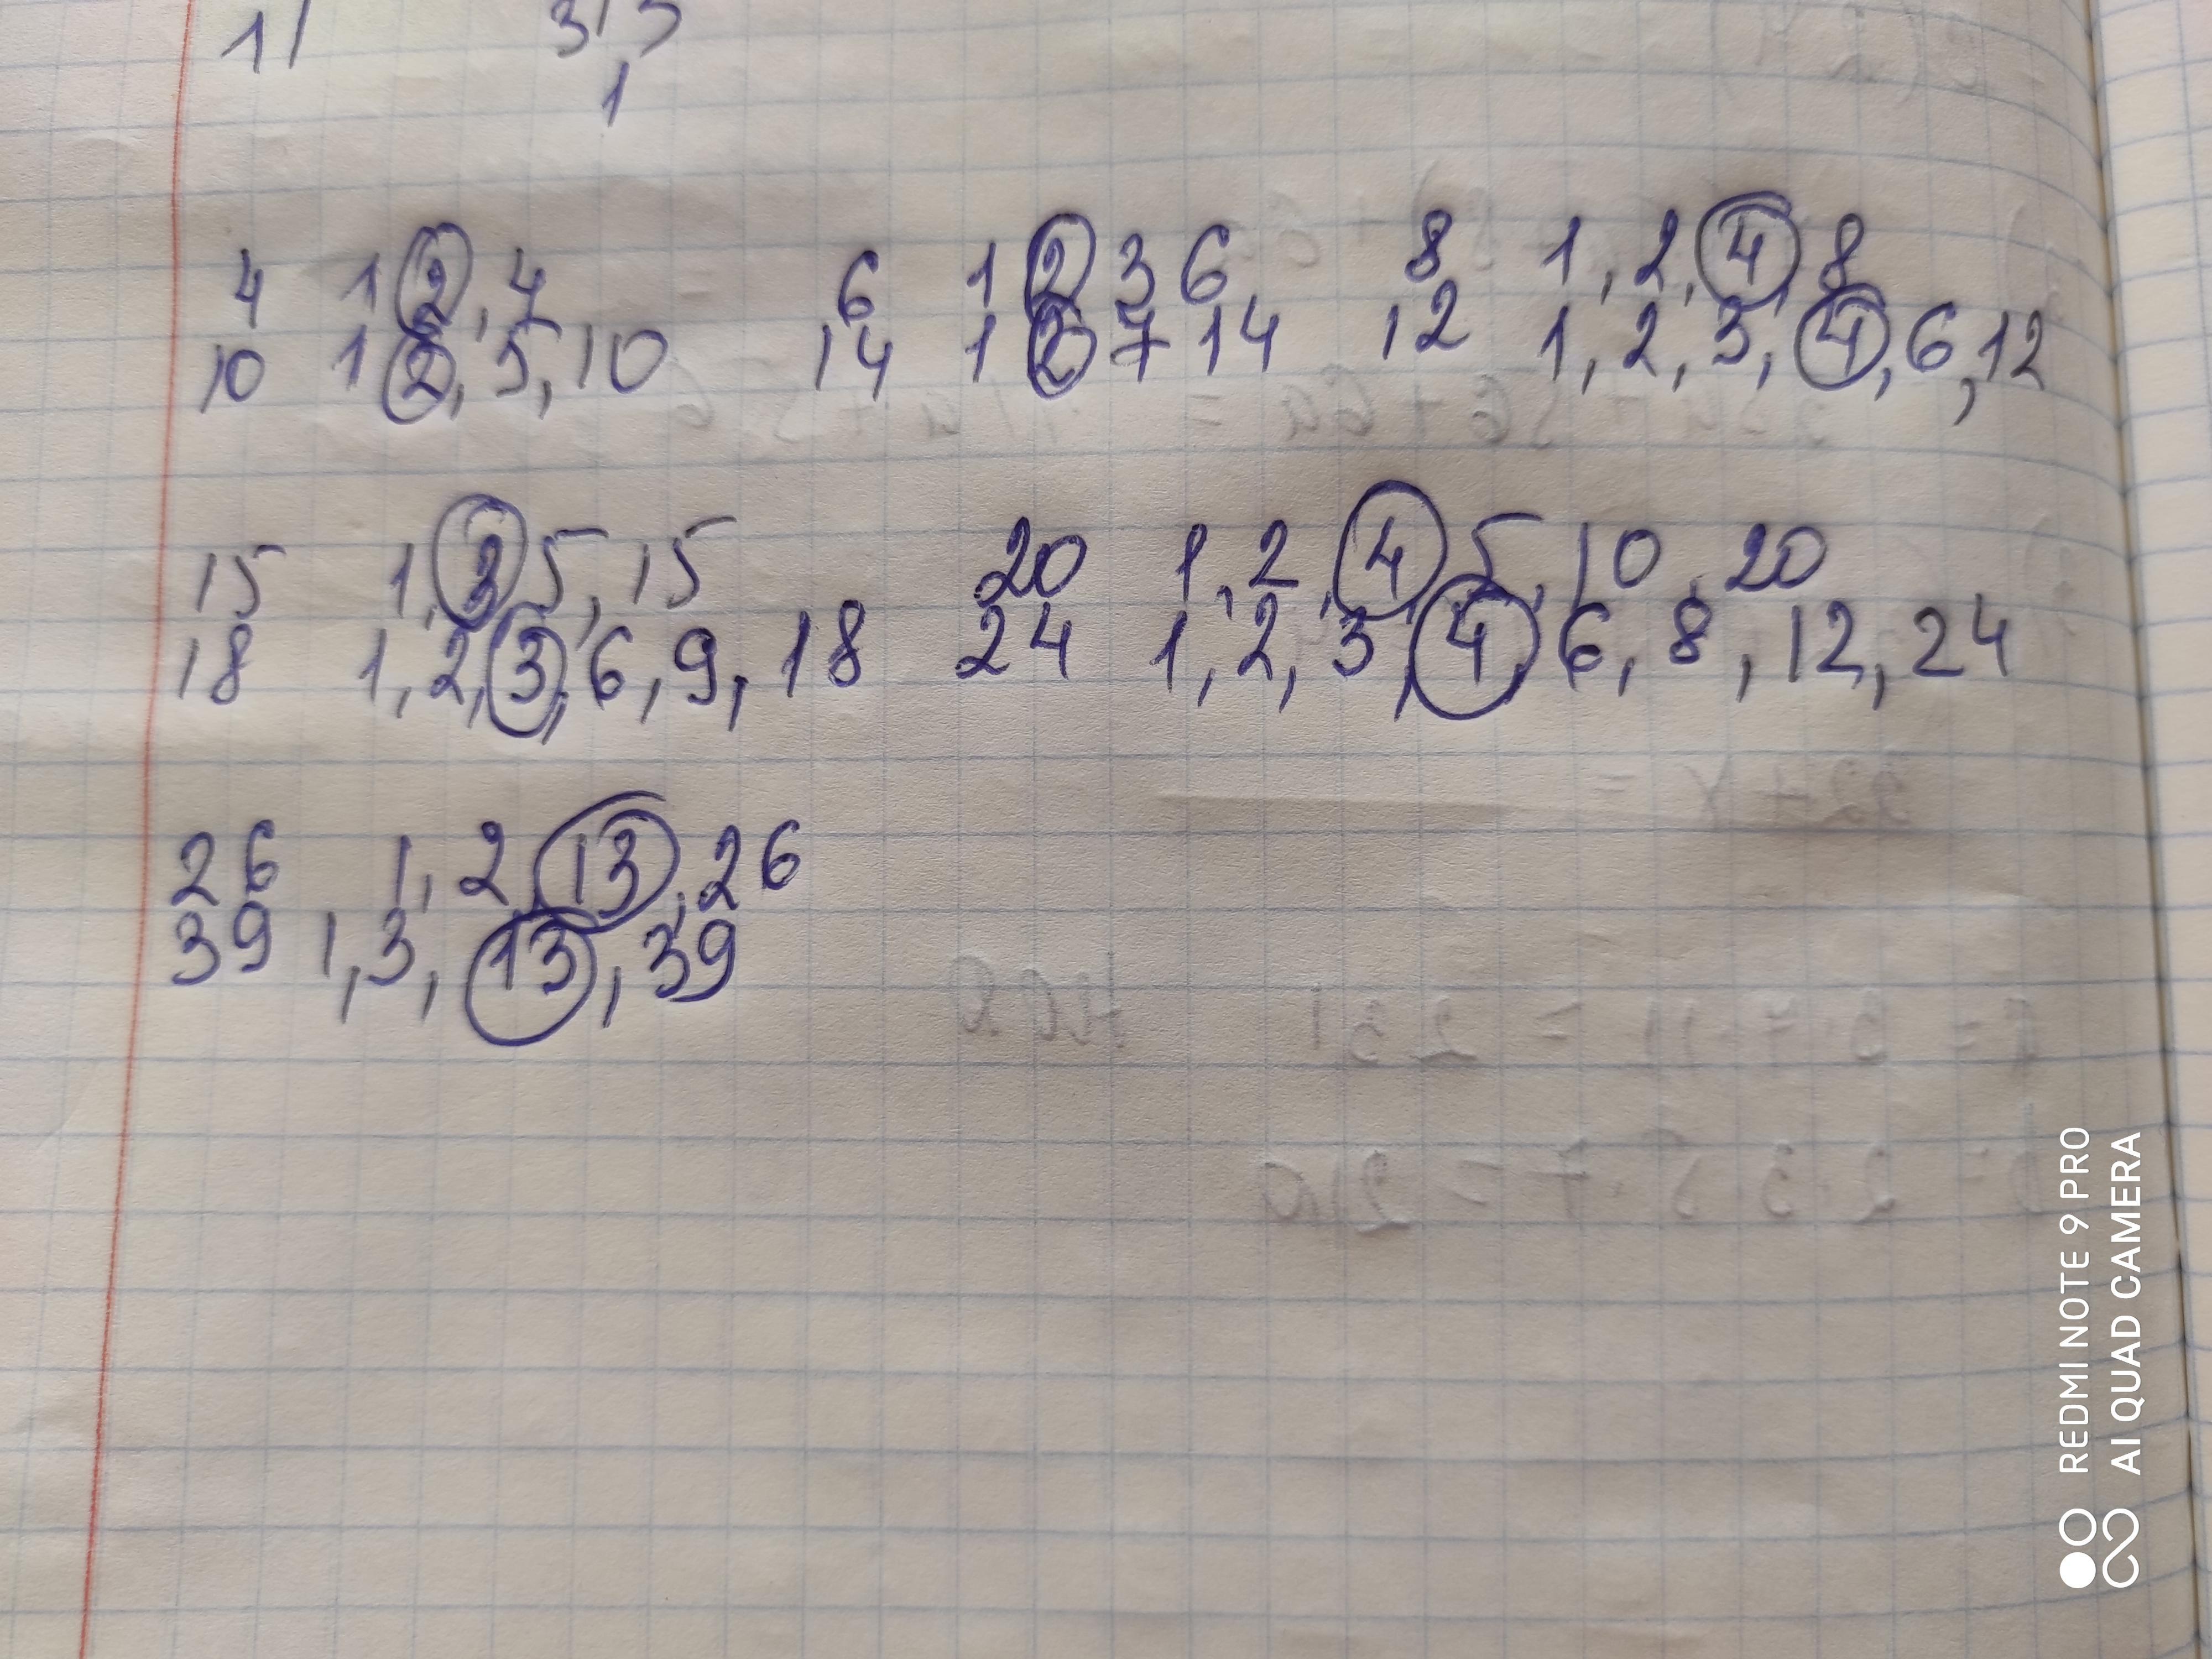 1 3 3
1
4 1 2, 4 6 1 2 3 6 8 1, 2, 4, 8
10 1 2, 5, 10 14 1 2 7 14 12 1, 2, 3, 4, 6, 12
15 1, 3, 5, 15 20 1, 2, 4, 5, 10, 20
18 1, 2, 3, 6, 9, 18 24 1, 2, 3, 4, 6, 8, 12, 24
26 1, 2, 13, 26
39 1, 3, 13, 39
REDMI NOTE 9 PRO
AI QUAD CAMERA